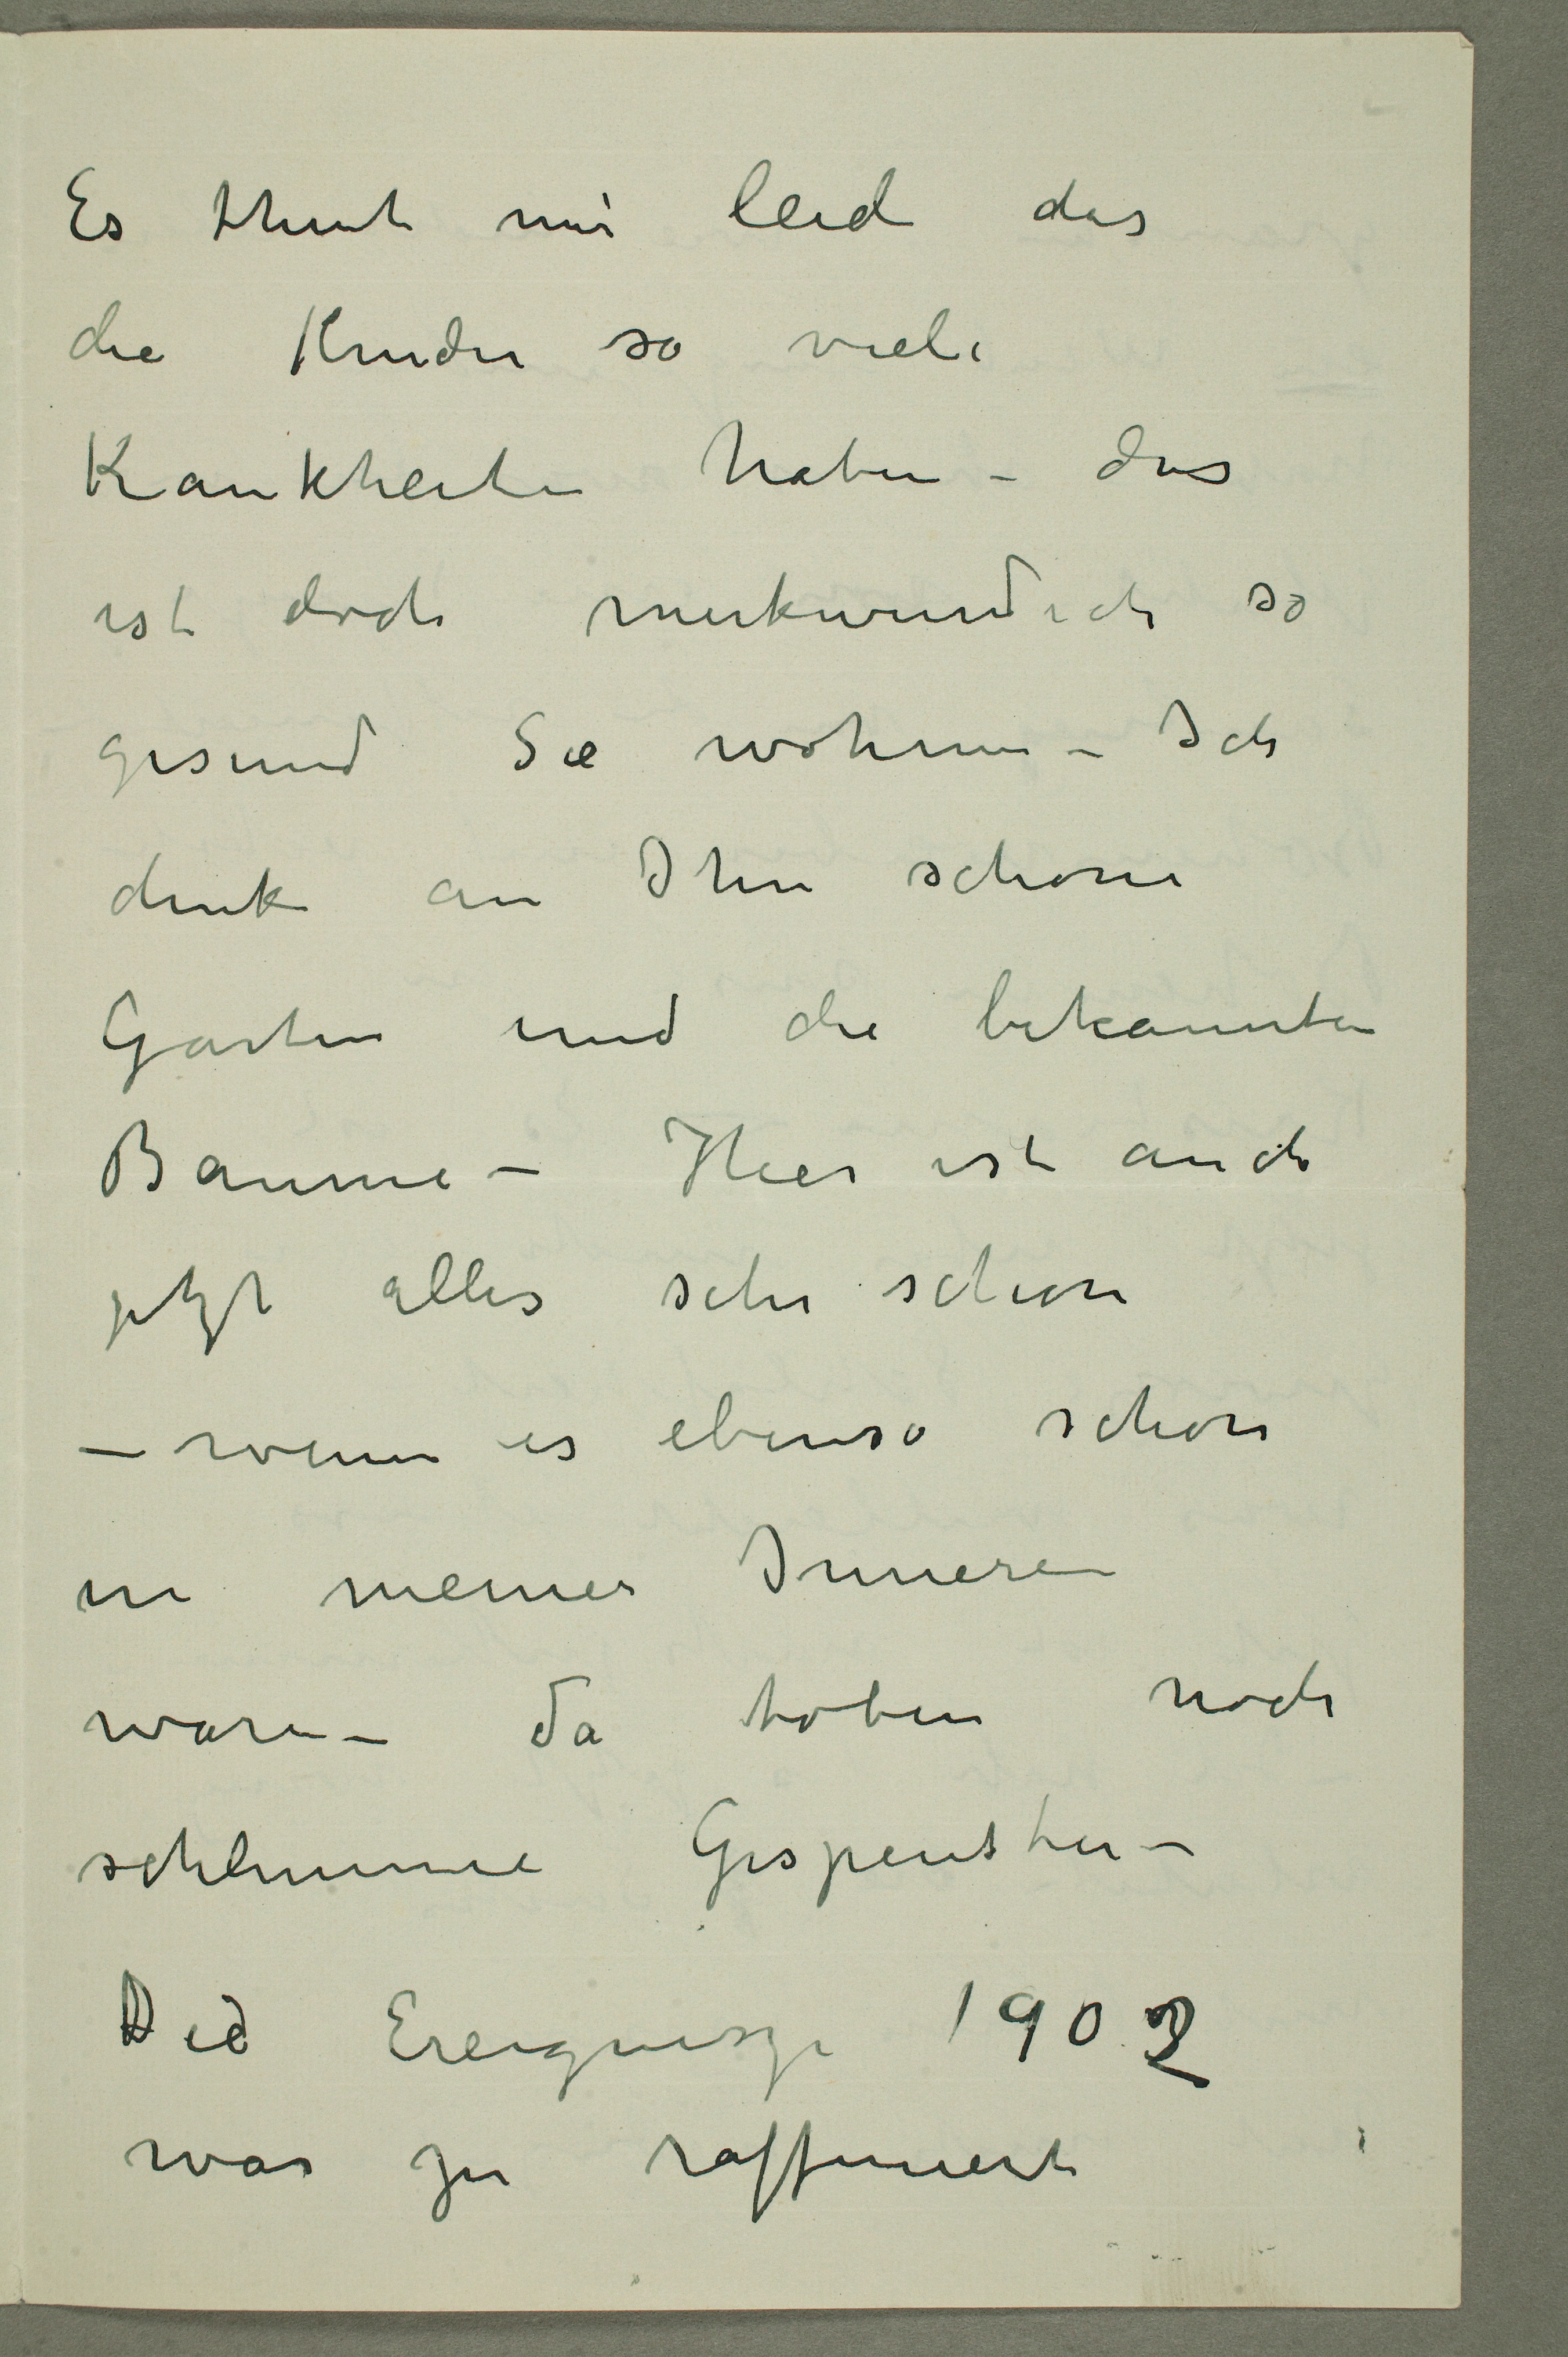 Es thut mir leid das
die Kinder so viele
Krankheiten haben – das
ist doch merkwurdich so
gesund Sie wohnen – Ich
denke an Ihre schöne
Garten und die bekannten
Baume – Hier ist auch
jetzt alles sehr schön
– wenn es ebenso schön
in meiner Inneren
ware – da toben noch
schlimme Gespenster –
Die Ereignisze 1902
war zu raffiniert